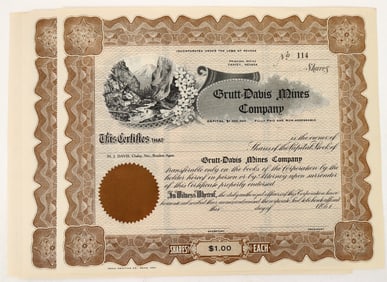 INCORPORATED UNDER THE LAWS OF NEVADA
No 114
PRINCIPAL OFFICE
NEVADA
Shares
Grutt-Davis Mines
Company
CAPITAL $1,000,000 FULLY PAID AND NON-ASSESSABLE
This Certifies THAT
is the owner of
Shares of the Capital Stock of
Grutt-Davis Mines Company
transferable only on the books of the Corporation by the
holder hereof in person or by Attorney upon surrender
of this Certificate properly endorsed.
In Witness Whereof, the duly authorized officers of this Corporation have
hereunto subscribed their names and caused the corporate Seal to be hereto affixed
this day of
SHARES $1.00 EACH